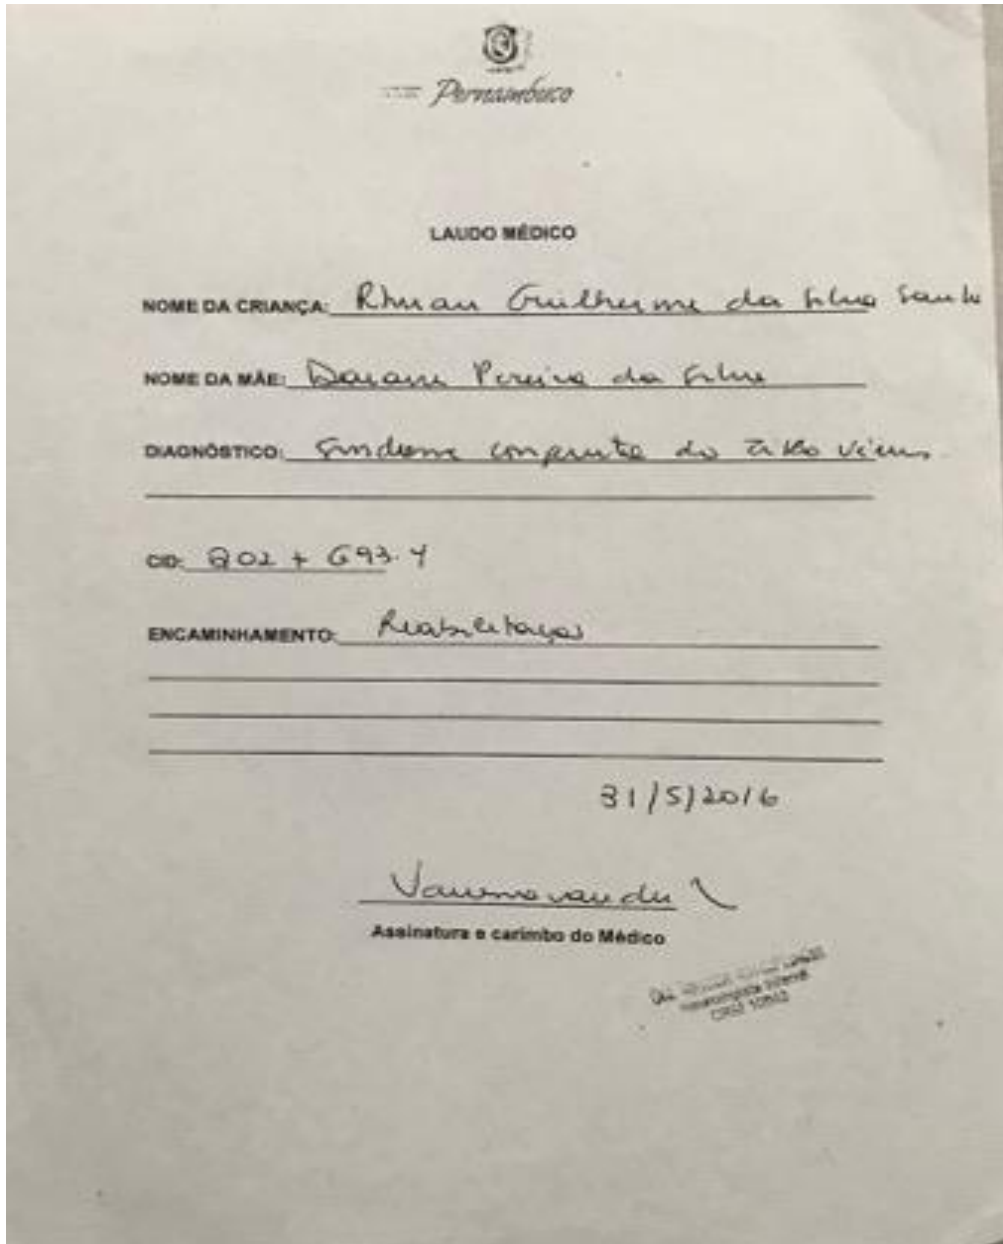 Pernambuco
LAUDO MÉDICO
NOME DA CRIANÇA: Rhuan Guilherme da Silva Santo
NOME DA MÃE: Daiane Pereira da Silva
DIAGNÓSTICO: Sindrome congenita do Zika virus
CID: Q02 + G93.4
ENCAMINHAMENTO: Reabilitação
31/5/2016
Assinatura e carimbo do Médico